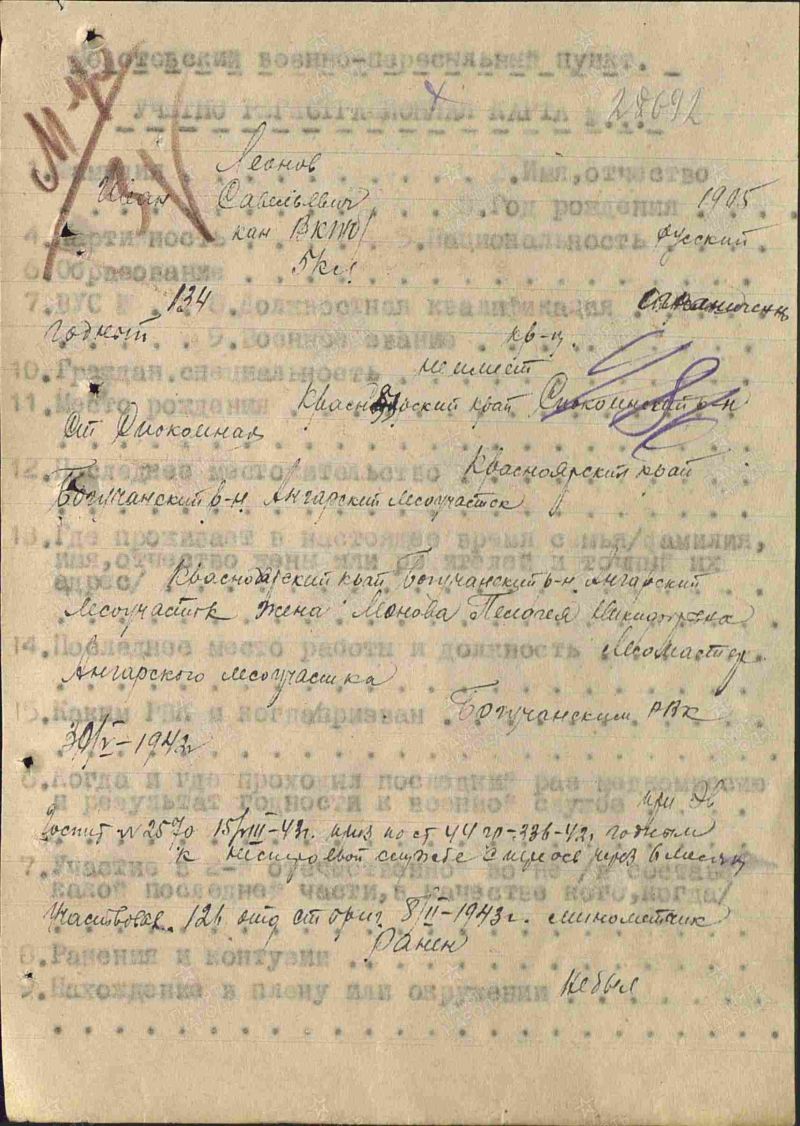 военно-пересыльный пункт.
УЧЕТНО РЕГИСТРАЦИОННАЯ КАРТА 28692
1. Фамилия Леонов 2. Имя, отчество
Иван Савельевич 3. Год рождения 1905
4. Партийность кан ВКП/б/ 5. Национальность русский
6. Образование 5 кл.
7. ВУС № 134 8. Должностная квалификация
годност 9. Военное звание кр-ц.
10. Граждан. специальность не имеет
11. Место рождения край р-н
ст
12. Последнее местожительство Красноярский край
Богучанский р-н Ангарский лесоучасток
13. Где проживает в настоящее время семья/фамилия,
имя, отчество жены или родителей и точный их
адрес/ край Богучанский р-н Ангарский
лесоучасток жена Леонова Пелагея Никифоровна
14. Последнее место работы и должность Лесомастер
Ангарского лесоучастка
15. Каким РВК и когда призван Богучанским РВК
1942г
6. Когда и где проходил последний раз медкомиссию
и результат годности к военной службе при Эв
Госпит № 2570 15/VIII-43г. по ст 44 гр-336-42г годным
к нестроевой службе с переосв через 6 месяц
7. Участие в отечественной войне /в составе
какой последней части, в качестве кого, когда/
Участвовал 126 отд ст бриг 8/II-1943г. минометчик
ранен
8. Ранения и контузии
9. Нахождение в плену или окружении не был